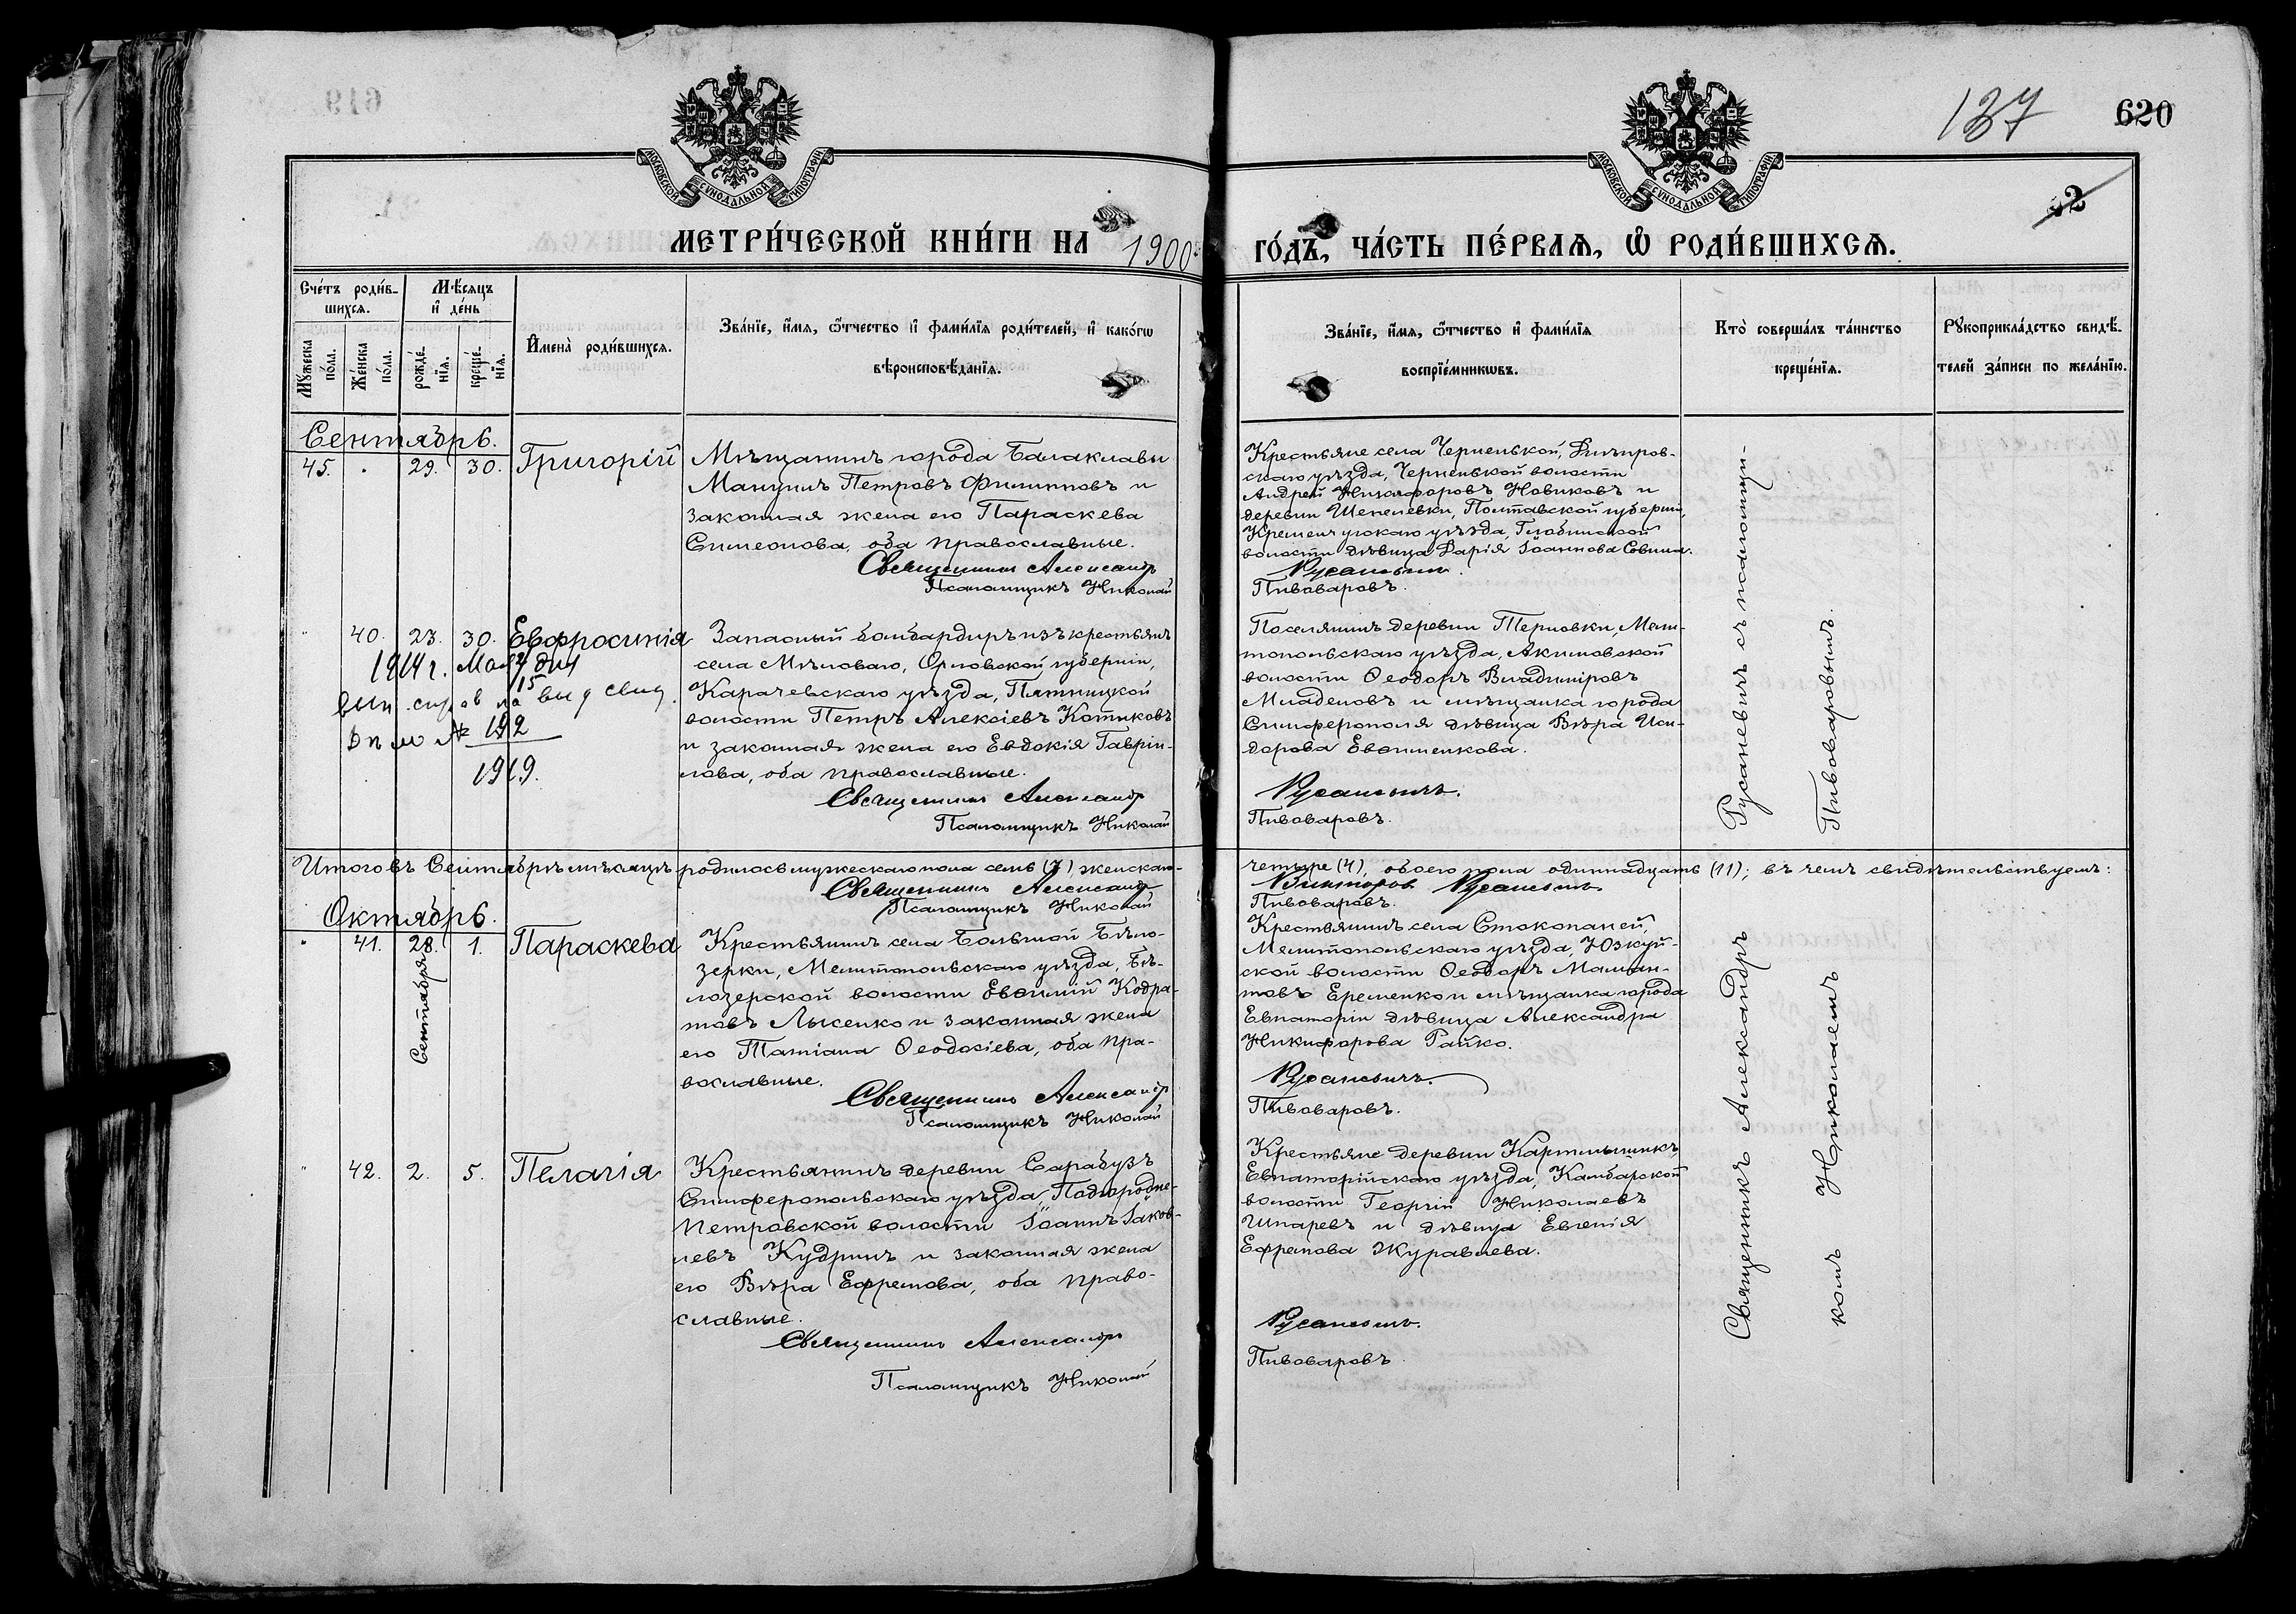 137
620
МОСКОВСКОЙ СѴНОДАЛЬНОЙ ТИПОГРАФІИ
МОСКОВСКОЙ СѴНОДАЛЬНОЙ ТИПОГРАФІИ
2
МЕТРИ́ЧЕСКОЙ КНИ́ГИ НА 1900 ГО́ДЪ, ЧА́СТЬ ПЕ́РВАѦ, Ѽ РОДИ́ВШИХСѦ.
Сче́тъ роди́в-
шихся.
Мѣ́сяцъ
и҆ де́нь
Мꙋ́жеска
по́ла.
Же́нска
по́ла.
рожде́-
нїя.
креще́-
нїя.
И҆мена̀ роди́вшихся.
Зва́нїе, и҆́мя, ѻ҆́тчество и҆ фами́лїя роди́телей, и҆ како́гѡ
вѣроисповѣ́данїя.
Зва́нїе, и҆́мя, ѻ҆́тчество и҆ фами́лїя
воспрїе́мникѡвъ.
Кто̀ соверша́лъ та́инство
креще́нїя.
Рꙋкоприкла́дство свидѣ́-
телей за́писи по жела́нїю.
Сентябрь.
45. 29. 30. Григорій
Мѣщанинъ города Балаклавы
Мануилъ Петровъ Филипповъ и
законная жена его Параскева
Симеонова, оба православные.
Священникъ Александр
Псаломщикъ Николай
Крестьяне села Черненькой, Днѣпров-
скаго уѣзда, Черненькой волости
Андрей Никифоровъ Новиковъ и
деревни Шепелевки, Полтавской губерніи,
Кременчугскаго уѣзда, Глобинской
волости дѣвица Дарія Іоаннова Савина.
Русаневичъ.
Пивоваровъ.
" 40. 23. 30. Евфросинія
1914 г. Мая дня
15
192
1919.
Запасный бомбардиръ изъ крестьянъ
села Мѣловаго, Орловской губерніи,
Карачевскаго уѣзда, Пятницкой
волости Петръ Алексіевъ Котиковъ
и законная жена его Евдокія Гаврии-
лова, оба православные.
Священникъ Александр
Псаломщикъ Николай
Поселянинъ деревни Терновки, Мели-
топольскаго уѣзда, Акимовской
волости Ѳеодоръ Владиміровъ
Младеновъ и мѣщанка города
Симферополя дѣвица Вѣра Иси-
дорова Евѳименкова.
Русаневичъ.
Пивоваровъ.
Итого въ Сентябрѣ мѣсяцѣ родилось мужескаго пола семь (7) женскаго-
четыре (4), обоего пола одиннадцать (11); въ чемъ свидѣтельствуемъ:
Священникъ Александр
Викторов Русаневичъ
Псаломщикъ Николай
Пивоваровъ.
Октябрь.
" 41. 28. Сентября 1. Параскева
Крестьянинъ села Большой Бѣло-
зерки, Мелитопольскаго уѣзда, Бѣ-
лозерской волости Евѳимій Кодра-
товъ Лысенко и законная жена
его Татіана Ѳеодосіева, оба пра-
вославные.
Священникъ Александр
Псаломщикъ Николай
Крестьянинъ села Стокопаней,
Мелитопольскаго уѣзда, Юзкуй-
ской волости Ѳеодоръ Малан-
товъ Еременко и мѣщанка города
Евпаторіи дѣвица Александра
Никифорова Райко.
Русаневичъ.
Пивоваровъ.
" 42. 2. 5. Пелагія
Крестьянинъ деревни Сарабузъ
Симферопольскаго уѣзда, Подгородне-
Петровской волости Іоаннъ Іаков-
левъ Кудринъ и законная жена
его Вѣра Ефремова, оба право-
славные.
Священникъ Александр
Псаломщикъ Николай
Крестьяне деревни
Евпаторійскаго уѣзда, Камбарской
волости Георгій Николаевъ
Шпаревъ и дѣвица Евгенія
Ефремова Журавлева.
Русаневичъ.
Пивоваровъ.
Священникъ Александръ Русаневичъ съ псаломщи-
комъ Николаемъ Пивоваровымъ.